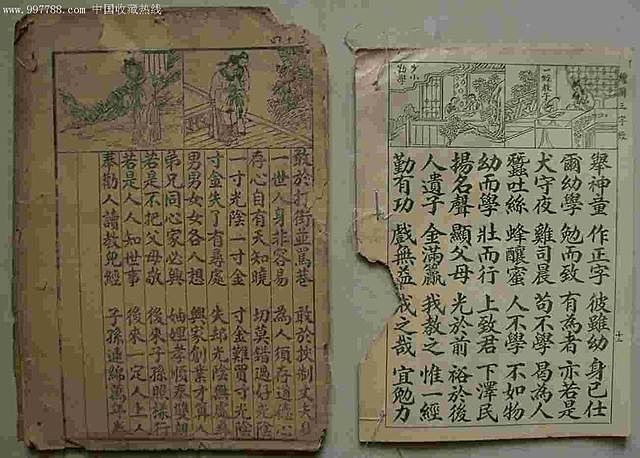 www.997788.com 中国收藏热线
敢於打街並罵巷 敢於扶制丈夫身
一世人身非容易 為人須存道德心
存心自有天知曉 切莫錯過好光陰
一寸光陰一寸金 寸金難買寸光陰
寸金失了有尋處 失却光陰無處尋
男男女女各人想 興家創業才算人
弟兄同心家必興 妯娌孝順存雙親
若是不把父母敬 後來子孫眼採行
若是人人知世事 後來一定人上人
奉勸人讀教兒經 子孫連綿萬年
繪圖三字經
十一
少小
勤學
舉神童 作正字 彼雖幼 身已仕
爾幼學 勉而致 有為者 亦若是
犬守夜 雞司晨 苟不學 曷為人
蠶吐絲 蜂釀蜜 人不學 不如物
幼而學 壯而行 上致君 下澤民
揚名聲 顯父母 光於前 裕於後
人遺子 金滿籯 我教之 惟一經
勤有功 戲無益 戒之哉 宜勉力